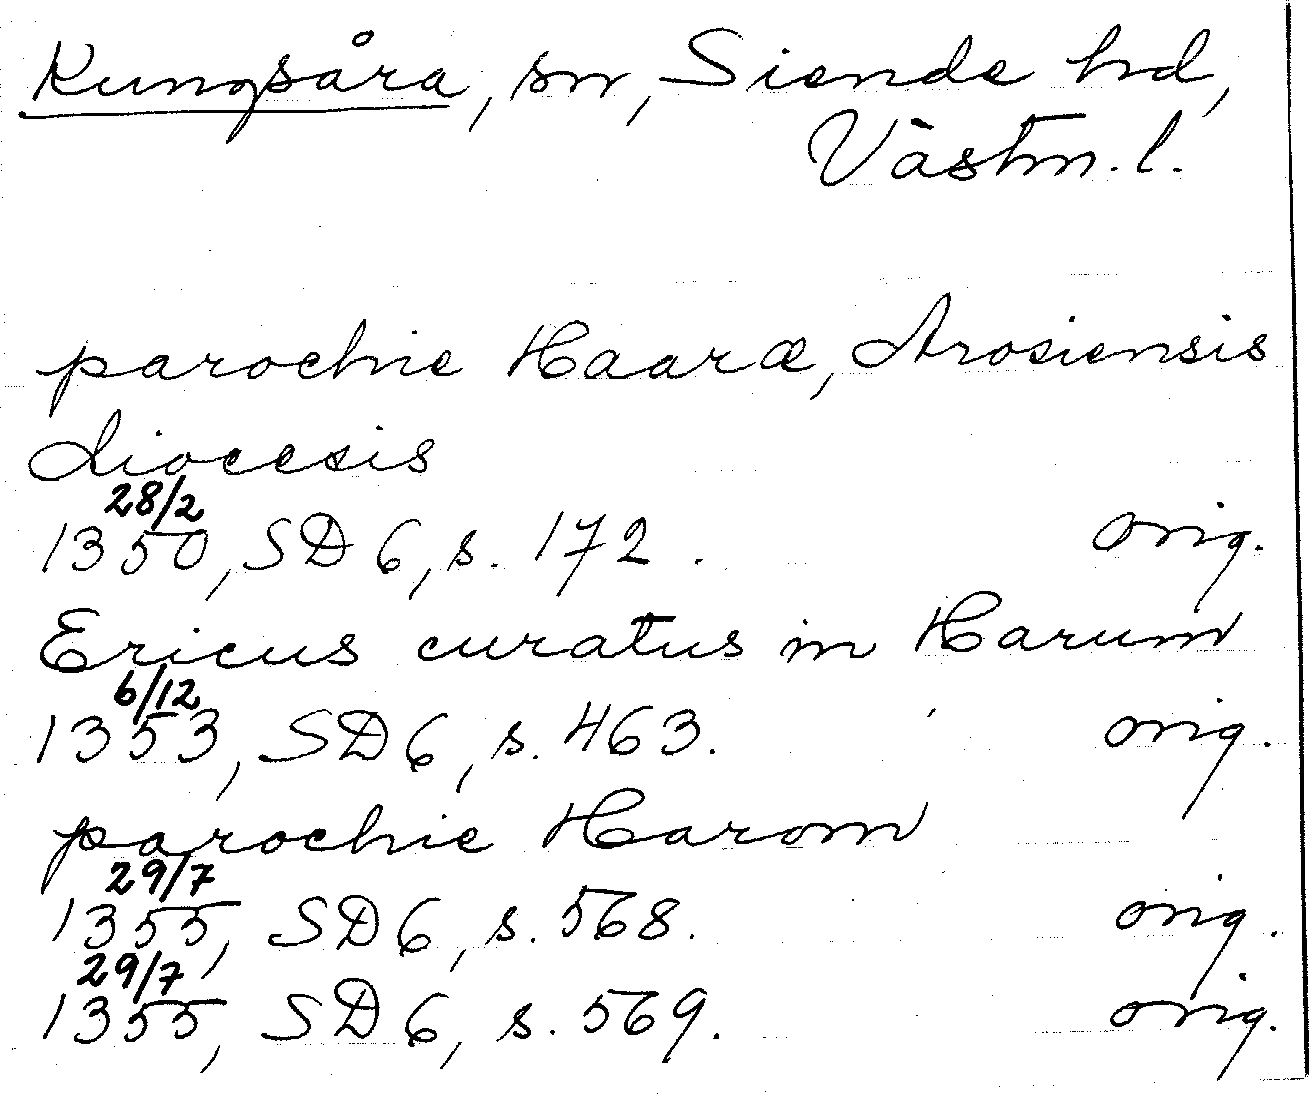 Kungsåra, sn, Siende hd,
Västm. l.
parochie Haaræ, Arosiensis
diocesis
28/2
1350, SD 6, s. 172. orig.
Ericus curatus in Harum
6/12
1353, SD 6, s. 463. orig.
parochie Harom
29/7
1355, SD 6, s. 568. orig.
29/7
1355, SD 6, s. 569. orig.